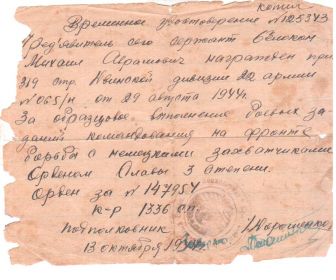 копия
Временное удостоверение №125343
Предъявитель сего сержант Белокон
Михаил Абрамович награжден при
319 стр. Двинской дивизии 22 армии
№065/н. от 29 августа 1944г.
За образцовое выполнение боевых за
даний командования на фронте
борьбы с немецкими захватчиками
Орденом Славы 3 степени.
Орден за № 147954
к-р 1336 сп.
подполковник Хорошенко
13 октября